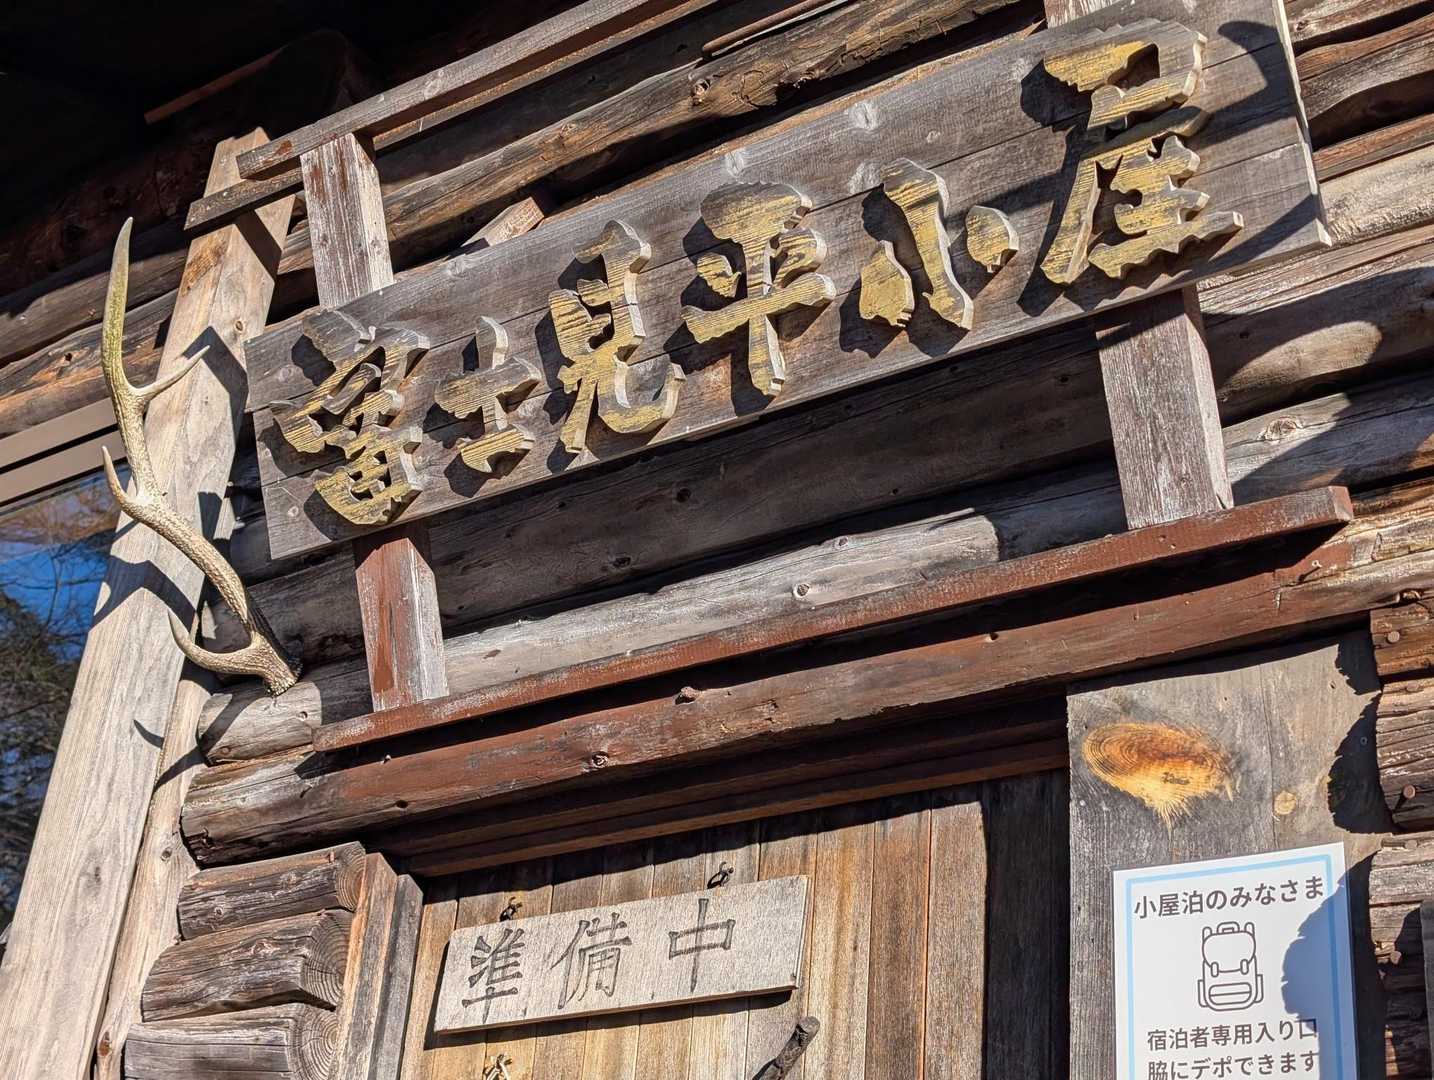 富士見平小屋
準備中
小屋泊のみなさま
宿泊者専用入り口
脇にデポできます